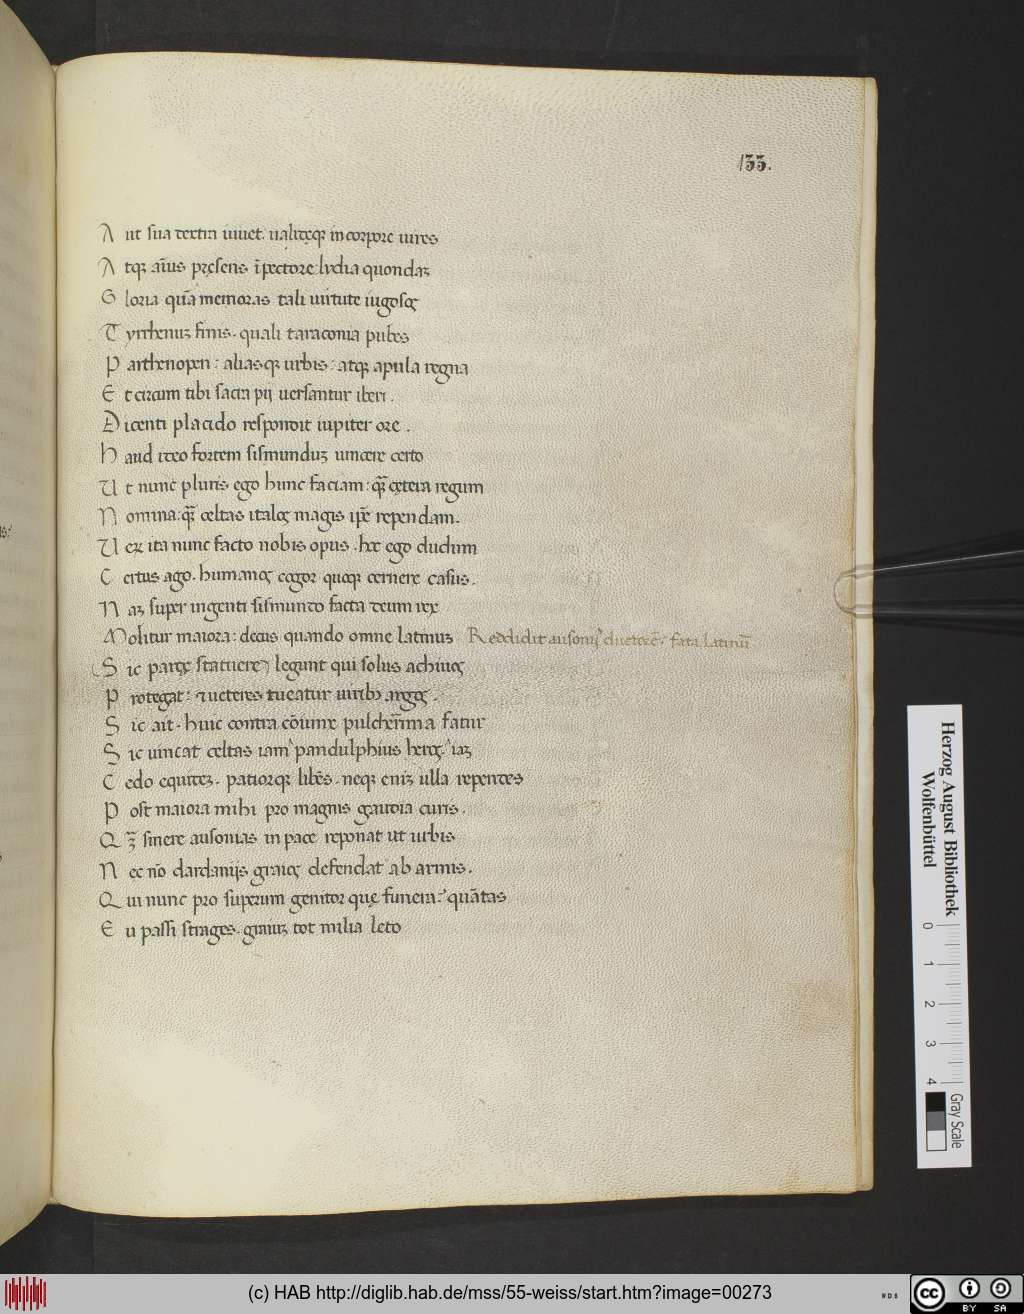 133.
Aut sua dextra iuuet. ualideq; in corpore uires
Atq; aĩus pręsens ĩ pectore: lydia quondaʒ
Gloria quã memoras tali uirtute iugosq;
Tyrrhenuʒ finis. quali taraconia pubes
Parthenopen: aliasq; urbis: atq; apula regna
Et circum tibi sacra pij uersantur iberi.
Dicenti placido respondit iupiter ore.
Haud ideo fortem sismunduʒ uincere certo
Ut nunc pluris ego hunc faciam: q̃ cętera regum
Nomina: q̃ celtas italos magis ip̃e rependam.
Ueʒ ita nunc facto nobis opus. hac ego dudum
Certus ago. humanos cogor quoq; cernere casus.
Naʒ super ingenti sismundo facta deum rex
Molitur maiora: decus quando omne latinus Reddidit ausonijs fata. Latinũ
Sic parcę statuere legunt qui solus achiuos
Protegat: & ueteres tueatur uirib; argos.
Sic ait. huic contra cõiunx pulcherr̃ima fatur
Sic uincat celtas iam pandulphius heros. iaʒ
Cedo equideʒ. patiorq; libẽs. neq; eniʒ ulla repentes
Post maiora mihi pro magnis gaudia curis.
Qʒ̃ sinere ausonias in pace reponat ut urbis
Nec nõ dardanijs graios defendat ab armis.
Qui nunc pro superum genitor quę funera: quãtas
Eu passi strages. graiuʒ tot milia leto
Herzog August Bibliothek
Wolfenbüttel
0 1 2 3 4
Gray Scale
(c) HAB http://diglib.hab.de/mss/55-weiss/start.htm?image=00273
CC BY SA